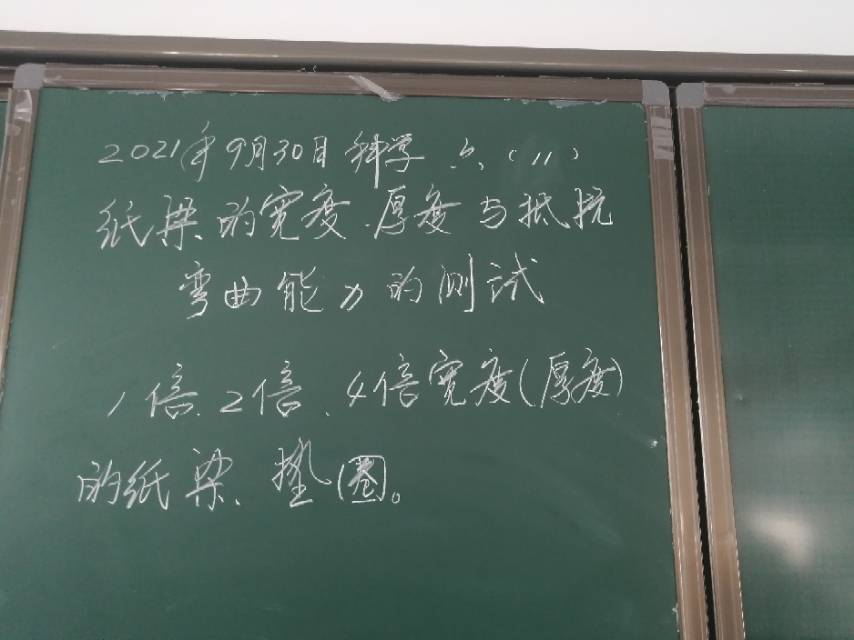 2021年9月30日 科学 六、(11)
纸梁的宽度、厚度与抵抗
弯曲能力的测试
1倍、2倍、4倍宽度(厚度)
的纸梁、垫圈。